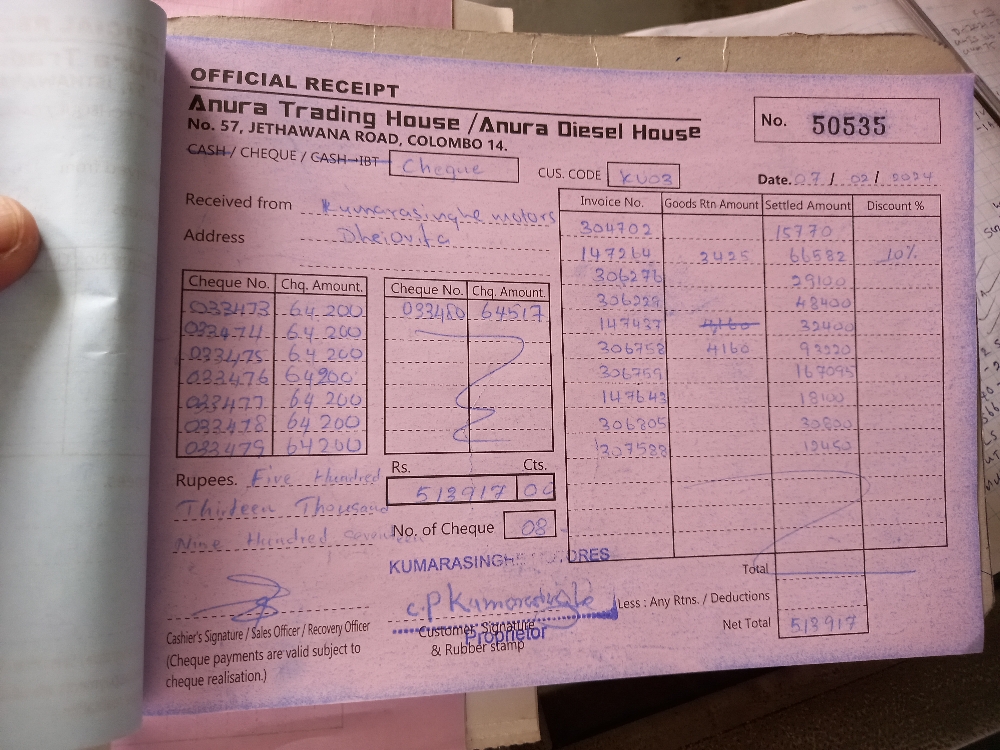 OFFICIAL RECEIPT
Anura Trading House / Anura Diesel House
No. 57, JETHAWANA ROAD, COLOMBO 14.
No. 50535
CASH / CHEQUE / CASH-IBT Cheque
CUS. CODE KU03
Date. 07 / 02 / 2024
Received from Kumarasinghe motors
Address
Invoice No. Goods Rtn Amount Settled Amount Discount %
304702 15770
147264 3425 66582 10%
306276 29100
48400
147437 4160 32400
306758 4160 93220
306759 167095
147643 18100
306805 30800
307588 12450
Cheque No. Chq. Amount. Cheque No. Chq. Amount.
033473 64 200 033480 64517
033474 64 200
033475 64 200
033476 64200
033477 64 200
033478 64 200
033479 64200
Rupees. Five Hundred
Thirteen Thousand
Nine Hundred seventeen
Rs. Cts.
513917 00
No. of Cheque 08
KUMARASINGHE
C.P Kumarasinghe
Customer Signature
Proprietor
& Rubber stamp
Cashier's Signature / Sales Officer / Recovery Officer
(Cheque payments are valid subject to
cheque realisation.)
Total
Less : Any Rtns. / Deductions
Net Total 513917